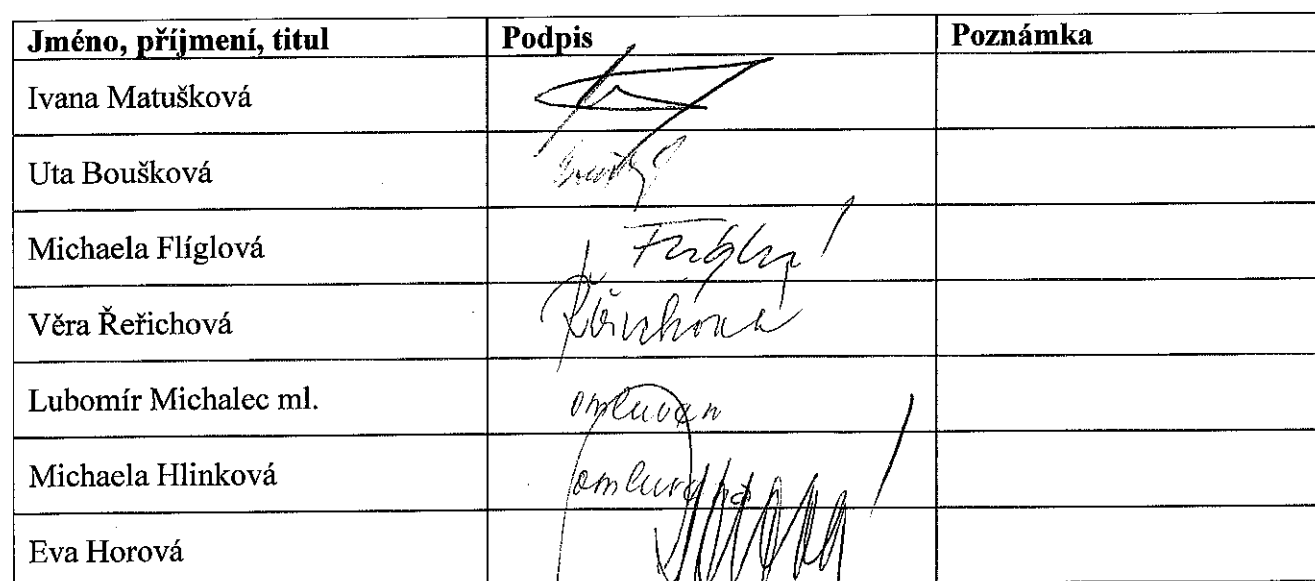 Jméno, příjmení, titul Podpis Poznámka
Ivana Matušková
Uta Boušková
Michaela Flíglová
Věra Řeřichová
Lubomír Michalec ml. omluven
Michaela Hlinková omluvena
Eva Horová